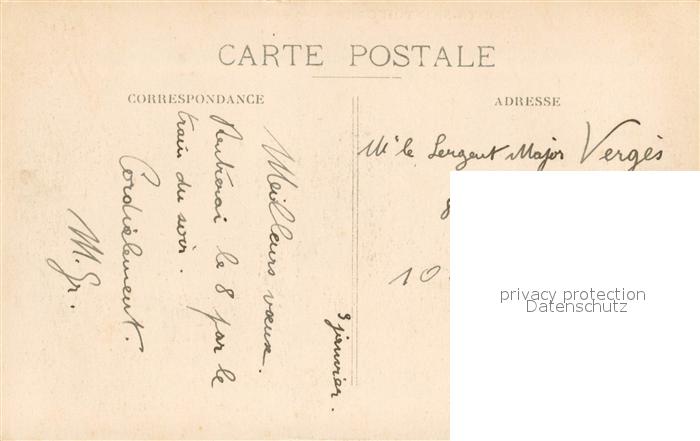 CARTE POSTALE
CORRESPONDANCE
Meilleurs vœux.
Rentrerai le 8 par le
train du soir.
Cordialement.
M. Gr.
3 janvier.
ADRESSE
Mr le Sergent Major Vergès
10
privacy protection
Datenschutz